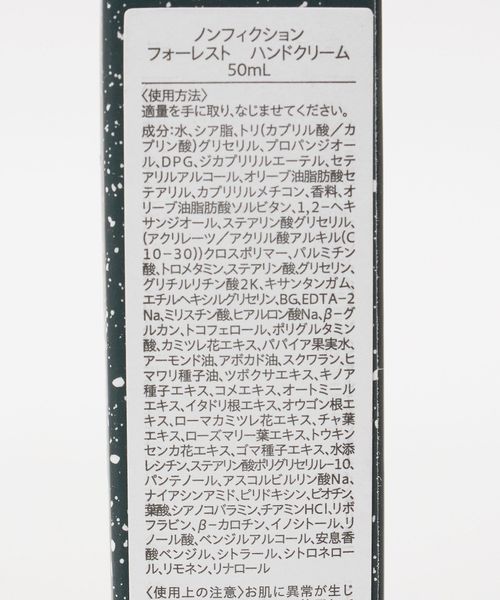 ノンフィクション
フォーレスト　ハンドクリーム
50mL
〈使用方法〉
適量を手に取り、なじませてください。
成分:水、シア脂、トリ(カプリル酸／カ
プリン酸)グリセリル、プロパンジオー
ル、DPG、ジカプリリルエーテル、セテ
アリルアルコール、オリーブ油脂肪酸セ
テアリル、カプリリルメチコン、香料、オ
リーブ油脂肪酸ソルビタン、1,2-ヘキ
サンジオール、ステアリン酸グリセリル、
(アクリレーツ／アクリル酸アルキル(C
10-30))クロスポリマー、パルミチン
酸、トロメタミン、ステアリン酸、グリセリン、
グリチルリチン酸2K、キサンタンガム、
エチルヘキシルグリセリン、BG、EDTA-2
Na、ミリスチン酸、ヒアルロン酸Na、β-グ
ルカン、トコフェロール、ポリグルタミン
酸、カミツレ花エキス、パパイア果実水、
アーモンド油、アボカド油、スクワラン、ヒ
マワリ種子油、ツボクサエキス、キノア
種子エキス、コメエキス、オートミール
エキス、イタドリ根エキス、オウゴン根エ
キス、ローマカミツレ花エキス、チャ葉
エキス、ローズマリー葉エキス、トウキン
センカ花エキス、ゴマ種子エキス、水添
レシチン、ステアリン酸ポリグリセリル-10、
パンテノール、アスコルビルリン酸Na、
ナイアシンアミド、ピリドキシン、ビオチン、
葉酸、シアノコバラミン、チアミンHCl、リボ
フラビン、β-カロチン、イノシトール、リ
ノール酸、ベンジルアルコール、安息香
酸ベンジル、シトラール、シトロネロー
ル、リモネン、リナロール
〈使用上の注意〉お肌に異常が生じ